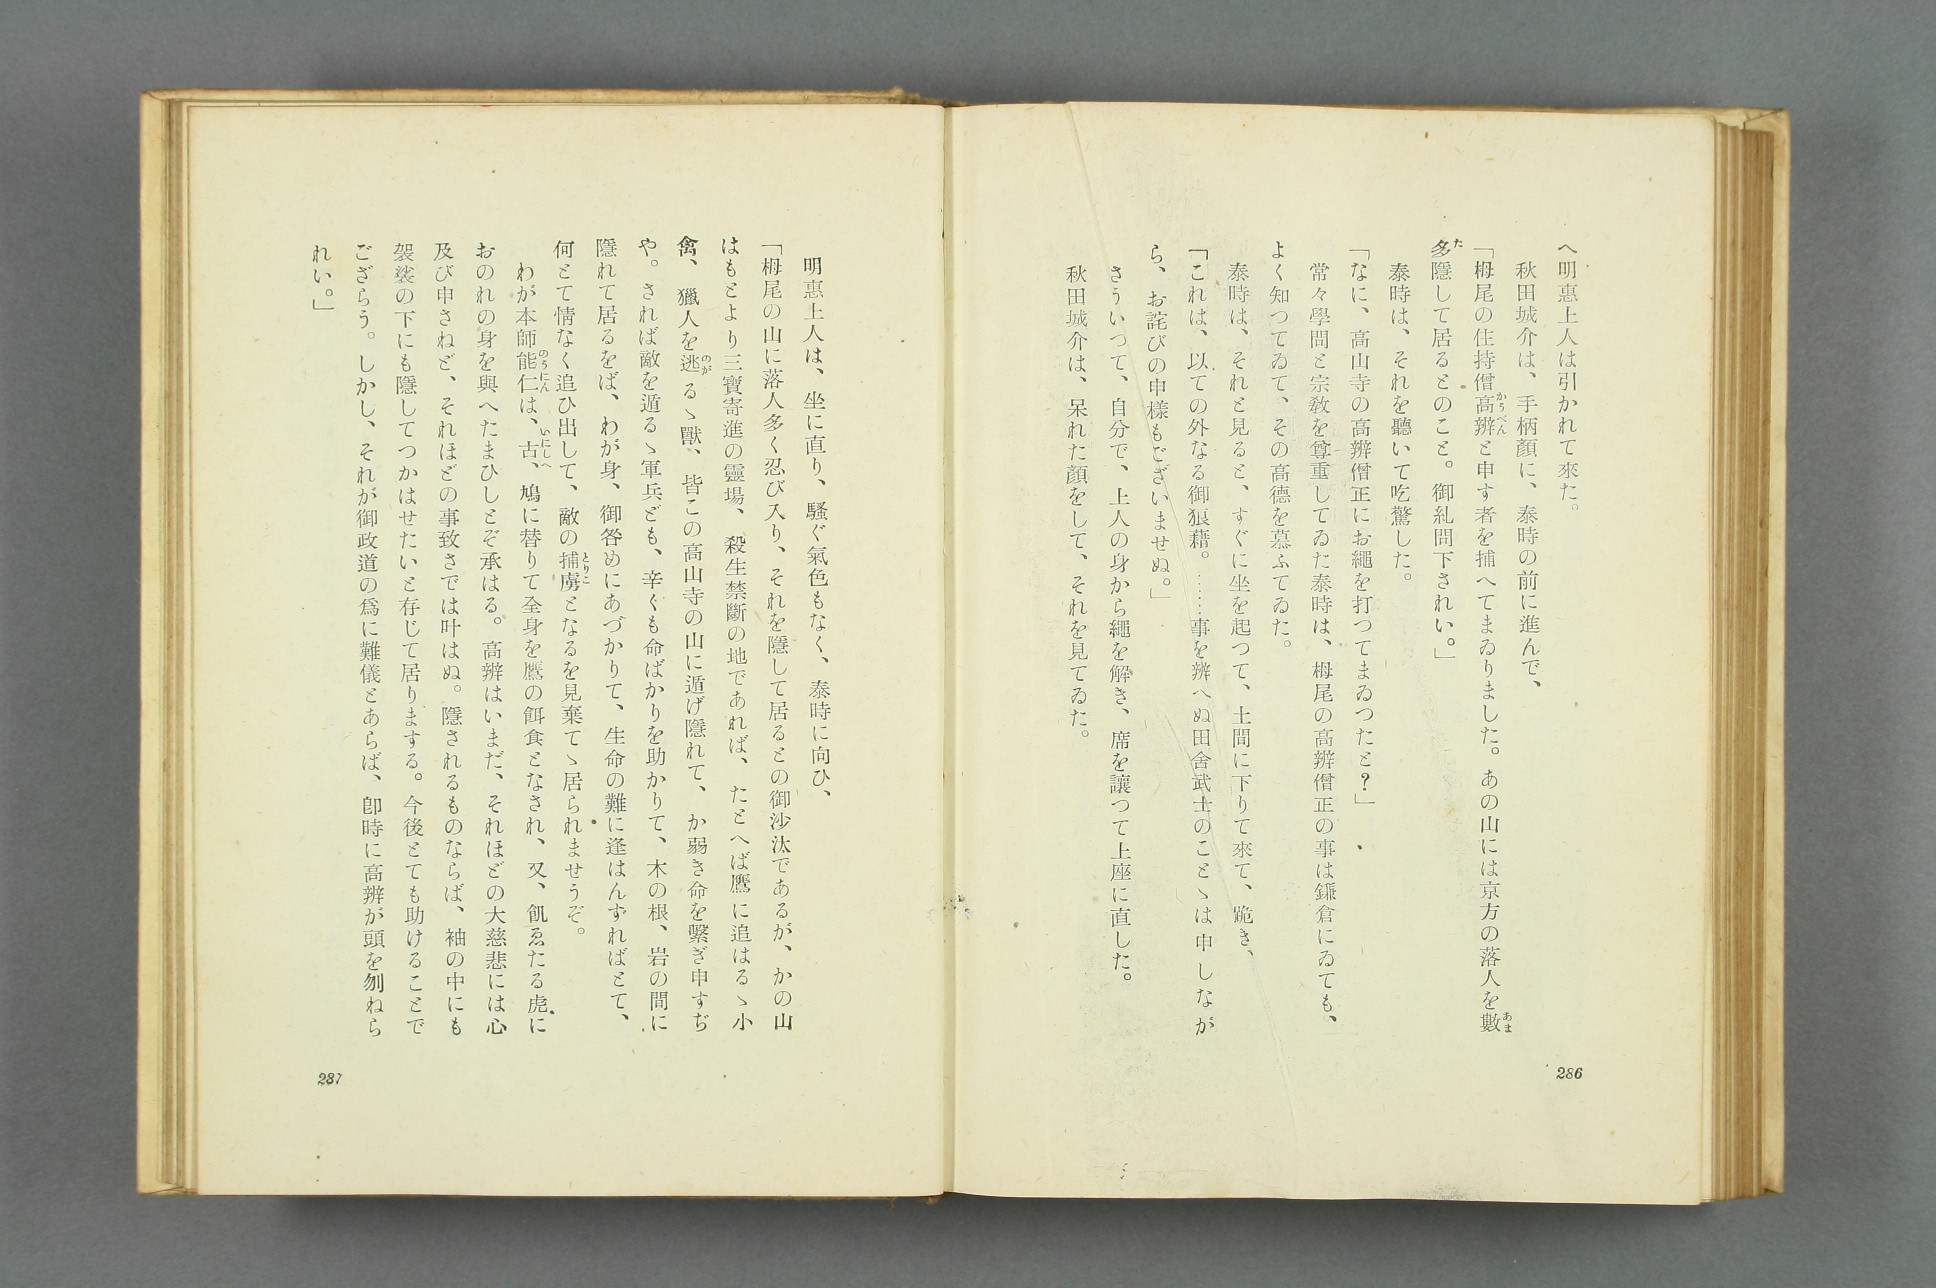 へ明惠上人は引かれて來た。
秋田城介は、手柄顏に、泰時の前に進んで、
「栂尾の住持僧高辨と申す者を捕へてまゐりました。あの山には京方の落人を數
多隱して居るとのこと。御糺問下されい。」
泰時は、それを聽いて吃驚した。
「なに、高山寺の高辨僧正にお繩を打つてまゐつたと?」
常々學問と宗敎を尊重してゐた泰時は、栂尾の高辨僧正の事は鎌倉にゐても、
よく知つてゐて、その高德を慕ふてゐた。
泰時は、それと見ると、すぐに坐を起つて、土間に下りて來て、跪き、
「これは、以ての外なる御狼藉。……事を辨へぬ田舍武士のことゝは申しなが
ら、お詫びの申樣もございませぬ。」
さういつて、自分で、上人の身から繩を解き、席を讓つて上座に直した。
秋田城介は、呆れた顏をして、それを見てゐた。
286
明惠上人は、坐に直り、騷ぐ氣色もなく、泰時に向ひ、
「栂尾の山に落人多く忍び入り、それを隱して居るとの御沙汰であるが、かの山
はもとより三寶寄進の靈場、殺生禁斷の地であれば、たとへば鷹に追はるゝ小
禽、獵人を逃るゝ獸、皆この高山寺の山に遁げ隱れて、か弱き命を繫ぎ申すぢ
や。されば敵を遁るゝ軍兵ども、辛くも命ばかりを助かりて、木の根、岩の間に
隱れて居るをば、わが身、御咎めにあづかりて、生命の難に逢はんずればとて、
何とて情なく追ひ出して、敵の捕虜となるを見棄てゝ居られませうぞ。
わが本師能仁は、古、鳩に替りて全身を鷹の餌食となされ、又、飢ゑたる虎に
おのれの身を與へたまひしとぞ承はる。高辨はいまだ、それほどの大慈悲には心
及び申さねど、それほどの事致さでは叶はぬ。隱されるものならば、袖の中にも
袈裟の下にも隱してつかはせたいと存じて居りまする。今後とても助けることで
ござらう。しかし、それが御政道の爲に難儀とあらば、卽時に高辨が頭を刎ねら
れい。」
287